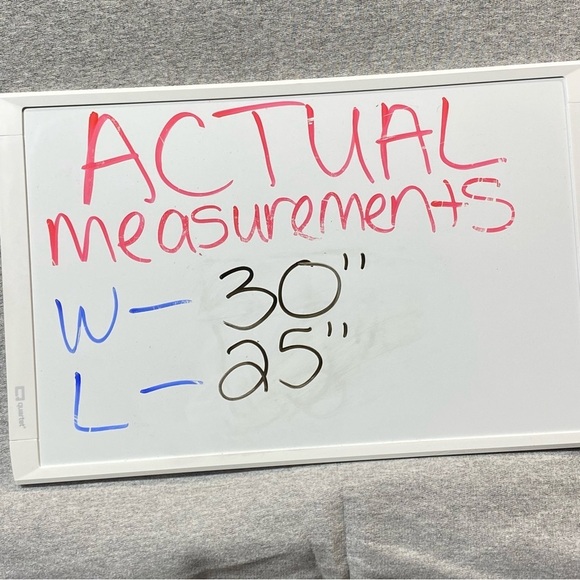 ACTUAL
measurements
W- 30"
L- 25"
Quartet